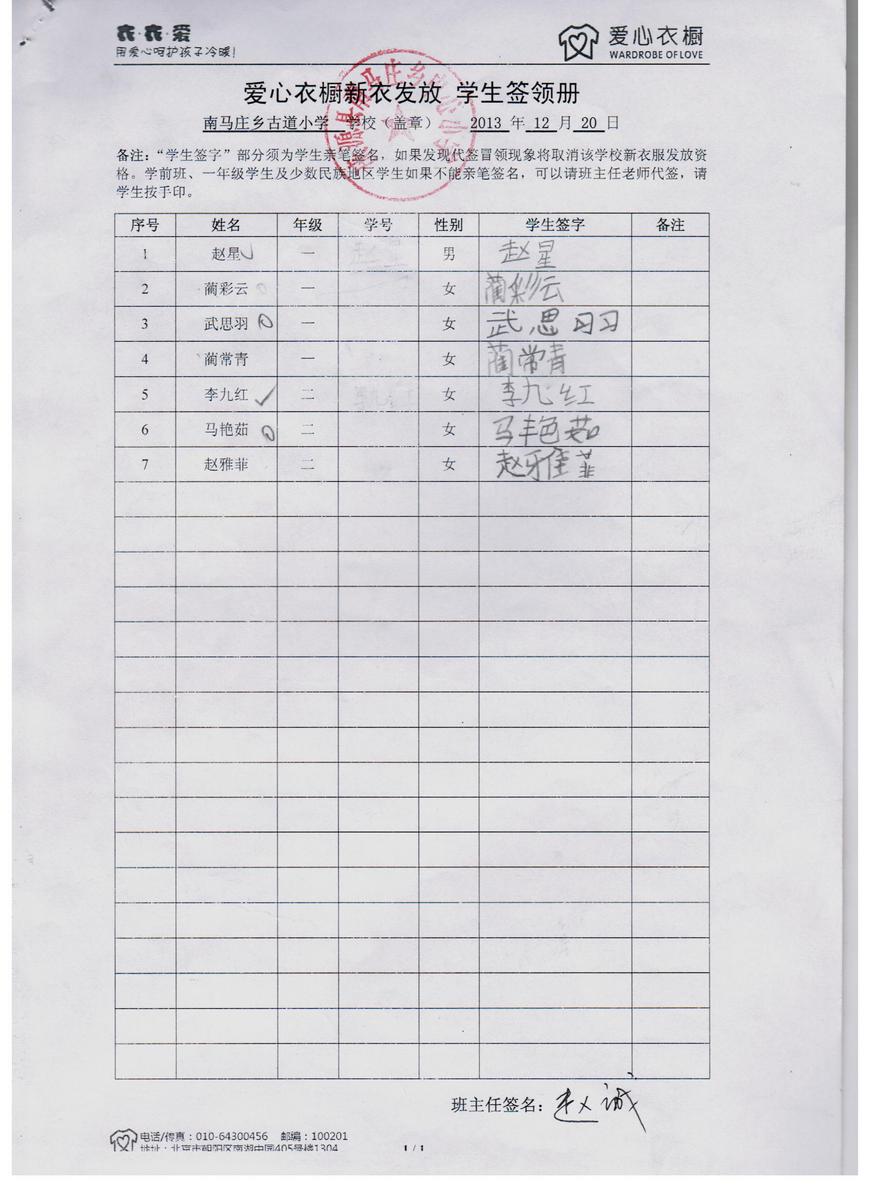 衣·衣·爱
用爱心呵护孩子冷暖!
爱心衣橱
WARDROBE OF LOVE
爱心衣橱新衣发放 学生签领册
南马庄乡古道小学 学校(盖章) 2013 年 12 月 20 日
备注:“学生签字”部分须为学生亲笔签名,如果发现代签冒领现象将取消该学校新衣服发放资
格。学前班、一年级学生及少数民族地区学生如果不能亲笔签名,可以请班主任老师代签,请
学生按手印。
序号 姓名 年级 学号 性别 学生签字 备注
1 赵星 一 男 赵星
2 蔺彩云 一 女 蔺彩云
3 武思羽 一 女 武思羽
4 蔺常青 一 女 蔺常青
5 李九红 二 女 李九红
6 马艳茹 二 女 马艳茹
7 赵雅菲 二 女 赵雅菲
班主任签名:赵诚
电话/传真:010-64300456 邮编:100201
地址:北京市朝阳区南湖中园405号楼1304
1 / 1